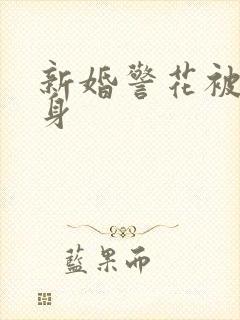 新婚警花被
身
藍果而